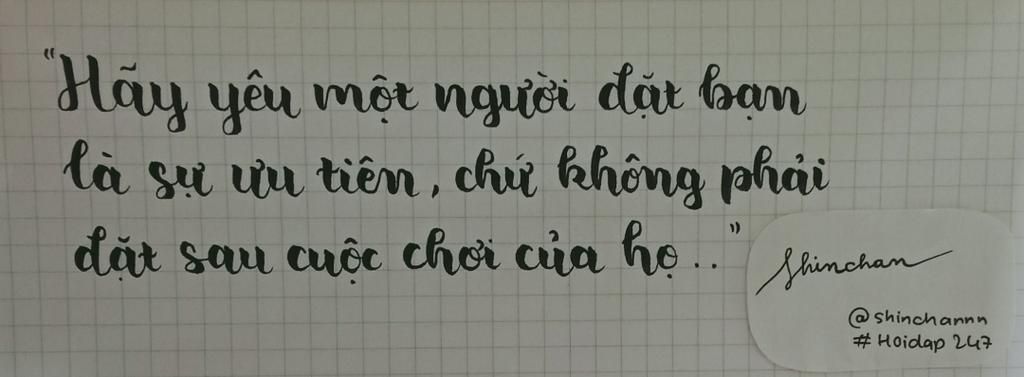 "Hãy yêu một người đặt bạn
là sự ưu tiên, chứ không phải
đặt sau cuộc chơi của họ.."
Shinchan
@shinchannn
# Hoidap 247